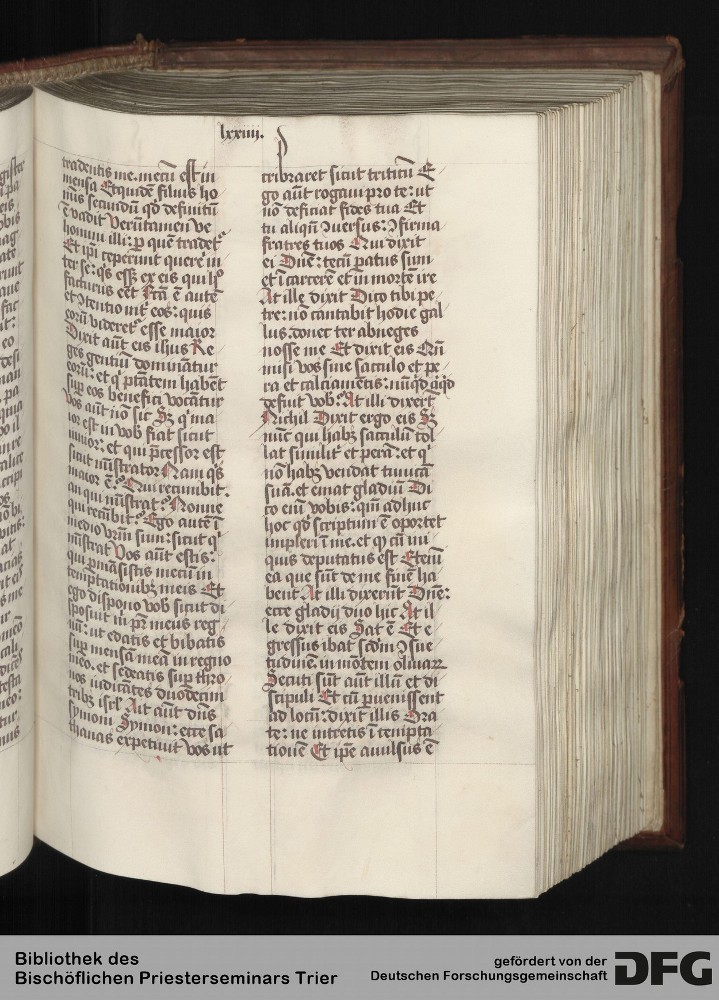 lxxiiii.
tradentis me. mecū est in
mensa Etquidē filius ho
mīs secundū qd definitū
ē vadit Verūtamen ve
homini illi: p quē tradet
Et ipi ceperunt querē in
ter se: qs esset ex eis qui h
facturus eēt Fcā ē autē
et ɔtentio int eos: quis
eorū videret esse maior
Dixit aūt eis ihus Re
ges gentiū dominātur
eorū: et q ptātem habēt
sup eos benefici vocātur
Vos aūt nō sic Sz q ma
ior est in vob fiat sicut
iunior: et qui pcessor est
sicut mīstrator Nam qs
maior ē: Qui recumbit.
an qui mīstrat: Nonne
qui recūbit: Ego autē ī
medio vrm sum: sicut q
mīstrat Vos aūt estis:
qui pmāsistis mecū in
temptationibz meis Et
ego dispono vob sicut di
sposuit m pr meus reg
nū: ut edatis et bibatis
sup mensā meā in regno
meo. et sedeatis sup thro
nos iudicātes duodecim
tribz isrl Ait aūt dns
symoni Symon: ecce sa
thanas expetiuit vos ut
cribraret sicut triticū E
go aūt rogaui pro te: ut
nō deficiat fides tua Et
tu aliqn ɔuersus: ɔfirma
fratres tuos Qui dixit
ei Dne: tecū patus sum
et ī carcerē et in mortē ire
At ille dixit Dico tibi pe
tre: nō cantabit hodie gal
lus. donec ter abneges
nosse me Et dixit eis Qn
misi vos sine sacculo et pe
ra et calciamētis: nūqd aqd
defuit vob: At illi dixert
Nichil Dixit ergo eis Sz
nūc qui habz sacculū tol
lat similit et perā: et q
nō habz vendat tunicā
suā. et emat gladiū Di
co eni vobis: qm adhuc
hoc qd scriptum ē oportet
impleri ī me. et q cū ini
quis deputatus est Etenī
ea que sūt de me finē ha
bent At illi dixerūt Dne:
ecce gladij duo hic At il
le dixit eis Sat ē Et e
gressus ibat scdm ɔsue
tudinē in mōtem oliuarz
Secuti sūt aūt illū et di
scipuli Et cū puenissent
ad locū: dixit illis Ora
te: ne intretis ī tempta
tionē Et ipe auulsus ē
Bibliothek des
Bischöflichen Priesterseminars Trier
gefördert von der
Deutschen Forschungsgemeinschaft
DFG